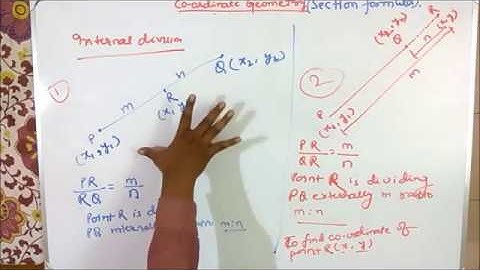 Co-ordinate Geometry (Section formula)
Internal division
1
P
(x₁, y₁)
m
R
n
Q (x₂, y₂)
PR/RQ = m/n
Point R is
PQ m:n
2
P
(x₁, y₁)
Q
(x₂, y₂)
R
(x, y)
n
m
PR/QR = m/n
Point R is dividing
PQ externally m ratio
m:n
To find co-ordinate of
point R (x, y)